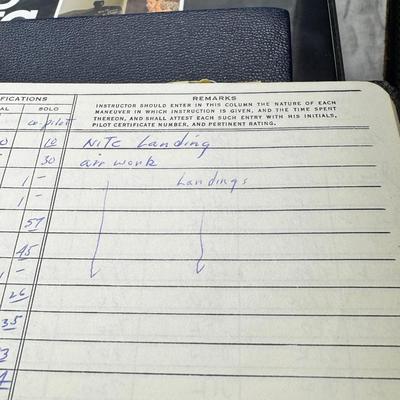 FICATIONS
REMARKS
AL
SOLO
INSTRUCTOR SHOULD ENTER IN THIS COLUMN THE NATURE OF EACH
MANEUVER IN WHICH INSTRUCTION IS GIVEN, AND THE TIME SPENT
THEREON, AND SHALL ATTEST EACH SUCH ENTRY WITH HIS INITIALS,
PILOT CERTIFICATE NUMBER, AND PERTINENT RATING.
co-pilot
10 NITE Landing
30 air work
1 - Landings
1 -
57
45
1 -
26
35
3